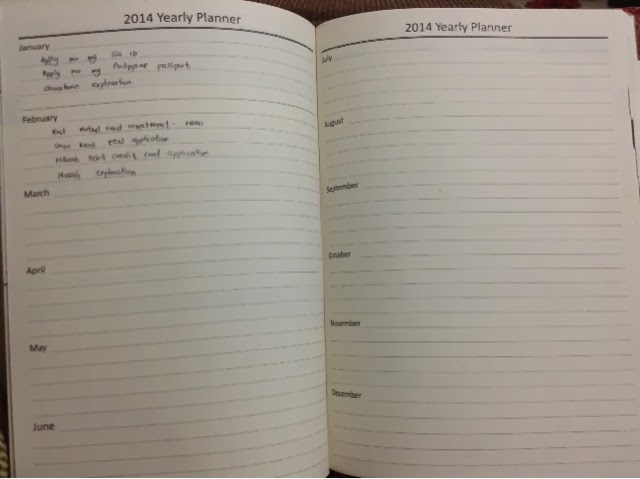 2014 Yearly Planner
January
Apply for my SSS ID
Apply for my Philippine passport
Chinatown exploration
February
First Mutual Fund investment
application
debit credit card application
exploration
March
April
May
June
2014 Yearly Planner
July
August
September
October
November
Desember